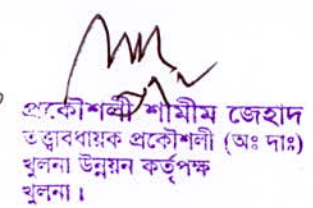 প্রকৌশলী শামীম জেহাদ
তত্ত্বাবধায়ক প্রকৌশলী (অঃ দাঃ)
খুলনা উন্নয়ন কর্তৃপক্ষ
খুলনা।